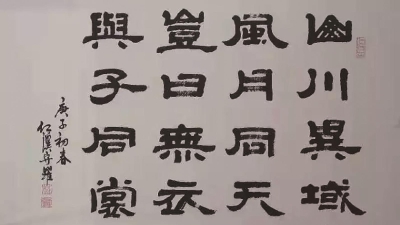 山川異域
風月同天
豈曰無衣
與子同裳
庚子初春